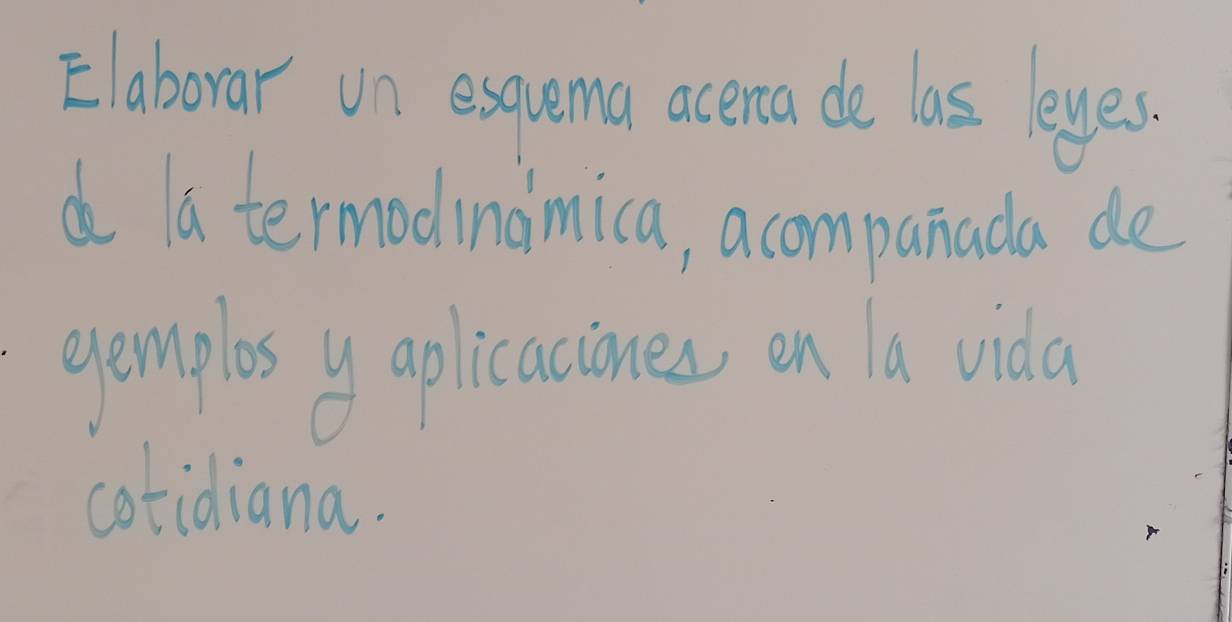 Elaborar un esquema acerca de las leyes.
de la termodinámica, acompañada de
ejemplos y aplicaciones en la vida
cotidiana.